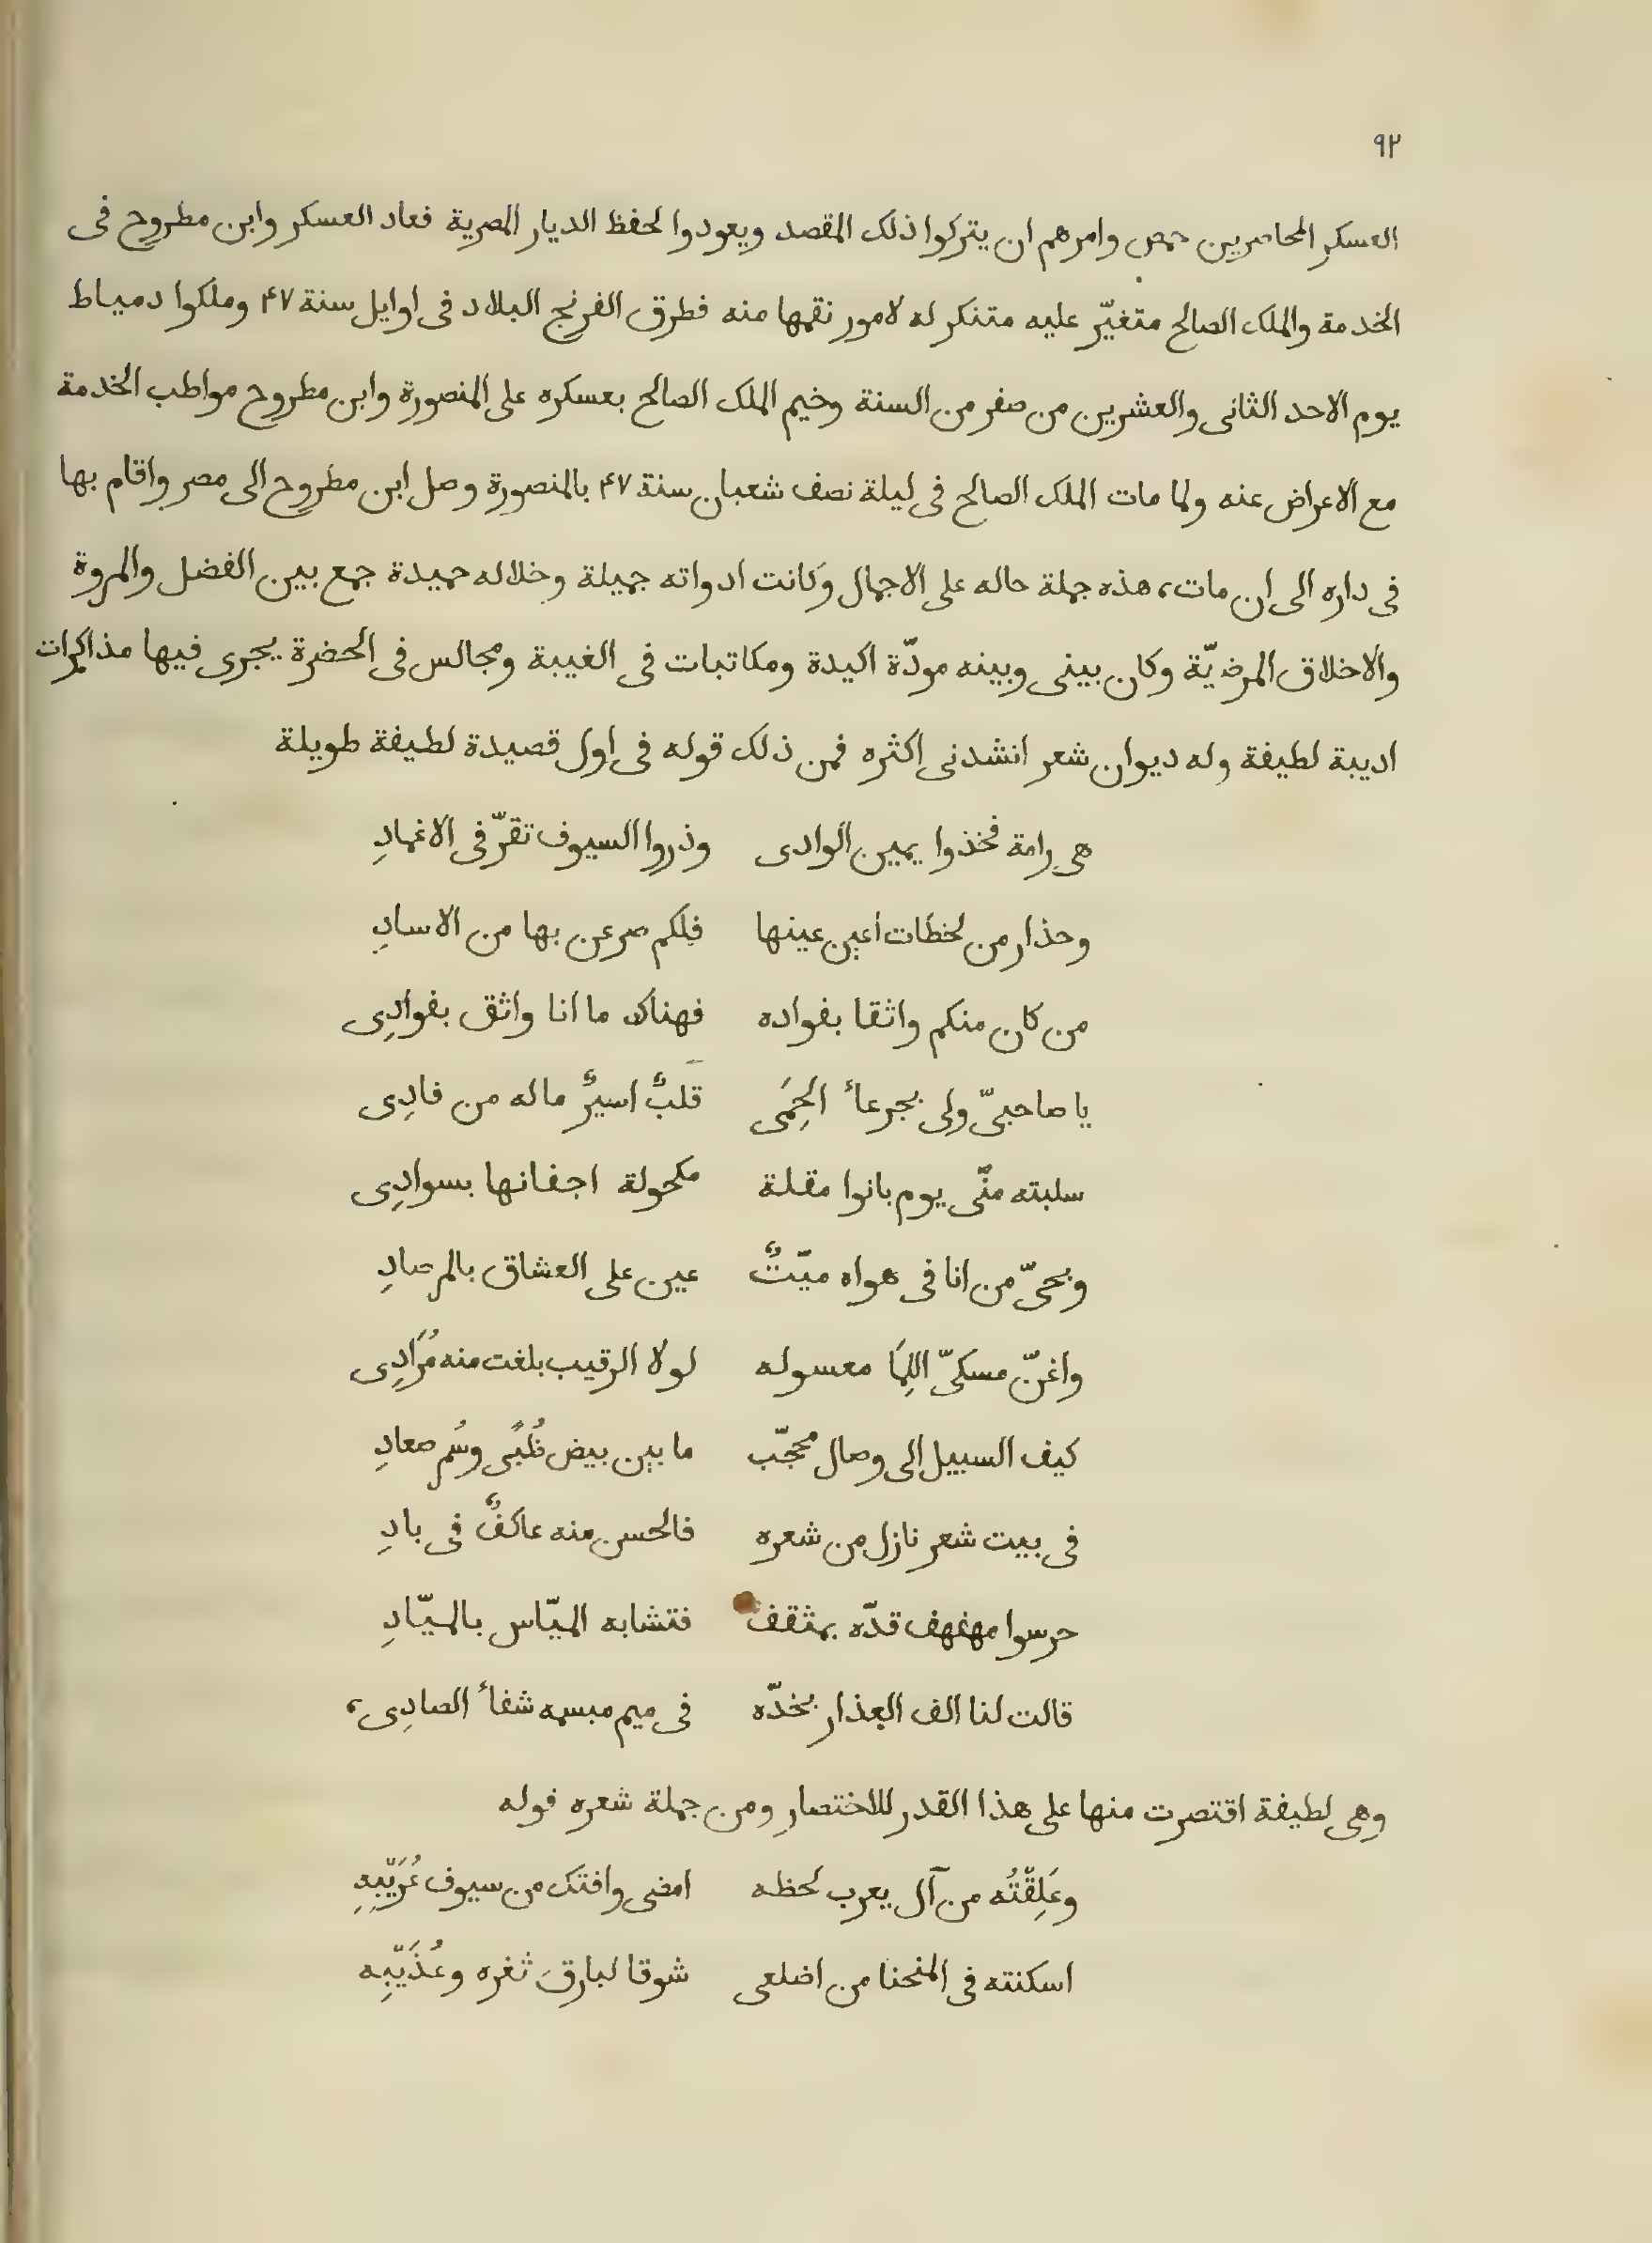 ٩٢
العسكر المحاصرين حمص وامرهم ان يتركوا ذلك المقصد ويعودوا لحفظ الديار المصرية فعاد العسكر وابن مطروح فى
الخدمة والملك الصالح متغيّر عليه متنكر له لامور نقمها منه فطرق الفرنج البلاد فى اوايل سنة ۴٧ وملكوا دمياط
يوم الاحد الثانى والعشرين من صفر من السنة وخيم الملك الصالح بعسكره على المنصورة وابن مطروح مواطب الخدمة
مع الاعراض عنه ولما مات الملك الصالح فى ليلة نصف شعبان سنة ۴٧ بالمنصورة وصل ابن مطروح الى مصر واقام بها
فى داره الى ان مات، هذه جملة حاله على الاجمال وكانت ادواته جميلة وخلاله حميدة جمع بين الفضل والمروة
والاخلاق المرضيّة وكان بينى وبينه مودّة اكيدة ومكاتبات فى الغيبة ومجالس فى الحضرة يجرى فيها مذاكرات
اديبة لطيفة وله ديوان شعر انشدنى اكثره فمن ذلك قوله فى اول قصيدة لطيفة طويلة
هى رامة فخذوا يمين الوادى وذروا السيوف تقرّ فى الاغمادِ
وحذار من لحظات اعين عينها فلكم صرعن بها من الاسادِ
من كان منكم واثقا بفواده فهناك ما انا واثق بفوادِى
يا صاحبىّ ولى بجرعاء الحِمَى قلبٌ اسيرٌ ماله من فادِى
سلبته منّى يوم بانوا مقلة مكحولة اجفانها بسوادِى
وبحىّ من انا فى هواه ميّتٌ عين على العشاق بالمرصادِ
واغنّ مسكىّ اللِمَا معسوله لولا الرقيب بلغت منه مُرَادِى
كيف السبيل الى وصال محجّب ما بين بيض ظُبًى وسُم صعادِ
فى بيت شعر نازل من شعره فالحسن منه عاكفٌ فى بادِ
حرسوا مهفهف قدّه بمثقف فتشابه الميّاس بالميّادِ
قالت لنا الف العذار بخدّه فى ميم مبسمه شفاء الصادِى،
وهى لطيفة اقتصرت منها على هذا القدر للاختصارِ ومن جملة شعره قوله
وعَلِقْتُه من آل يعرب لحظه امضى وافتك من سيوف عُرَيّبِهِ
اسكنته فى المنحنا من اضلعى شوقا لبارقَ ثغره وعُذَيّبِه